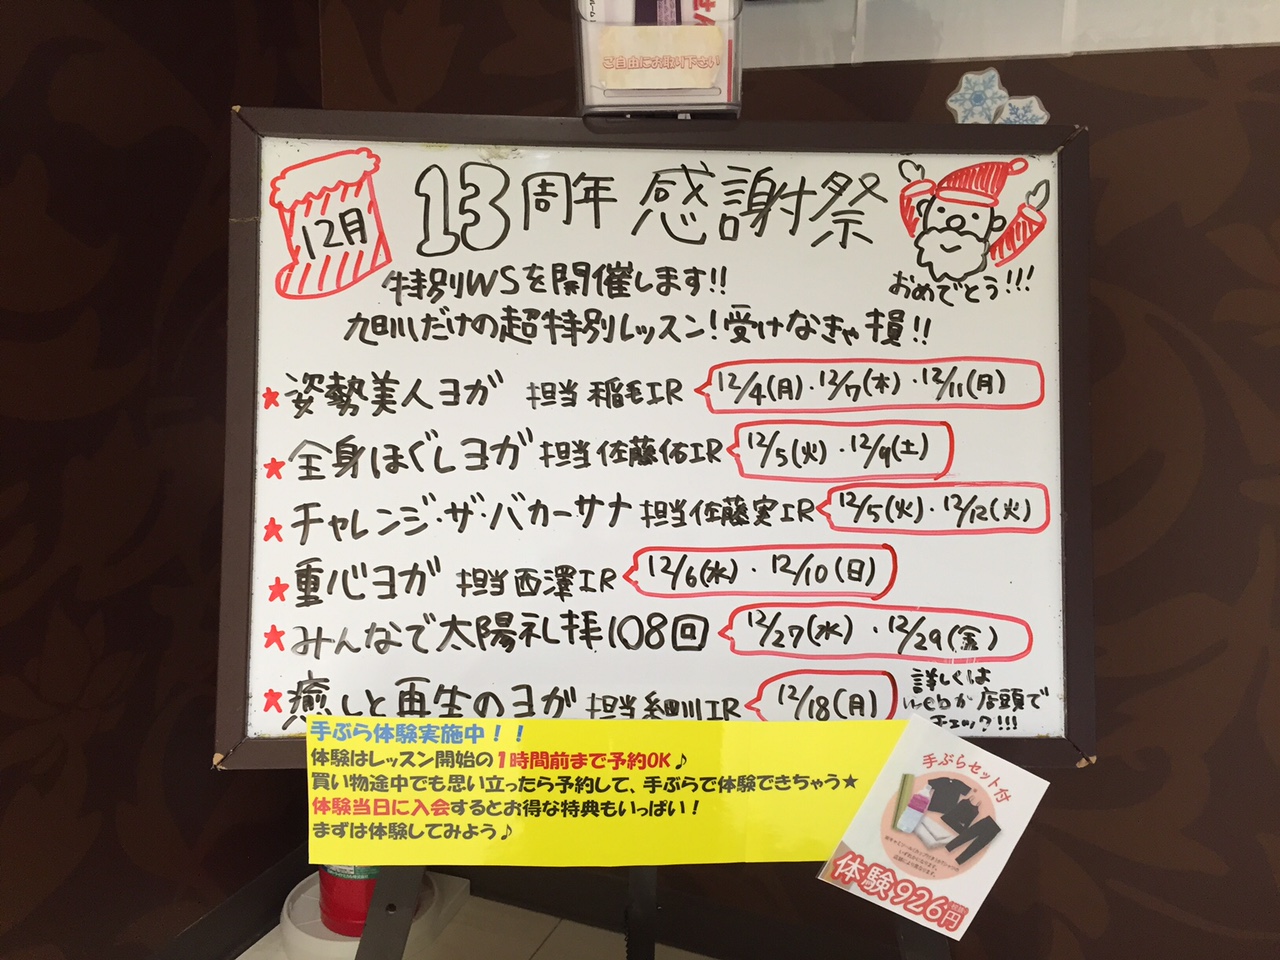 ご自由にお取り下さい
12月
13周年 感謝祭
おめでとう!!!
特別WSを開催します!!
旭川だけの超特別レッスン!受けなきゃ損!!
★姿勢美人ヨガ 担当 稲毛IR 12/4(月)・12/7(木)・12/11(月)
★全身ほぐしヨガ 担当 佐藤佑IR 12/5(火)・12/9(土)
★チャレンジ・ザ・バカーサナ 担当 佐藤実IR 12/5(火)・12/12(火)
★重心ヨガ 担当 西澤IR 12/6(水)・12/10(日)
★みんなで太陽礼拝108回 12/27(水)・12/29(金)
★癒しと再生のヨガ 担当 細川IR 12/18(月)
詳しくは
webか店頭で
チェック!!!
手ぶら体験実施中!!
体験はレッスン開始の1時間前まで予約OK♪
買い物途中でも思い立ったら予約して、手ぶらで体験できちゃう★
体験当日に入会するとお得な特典もいっぱい!
まずは体験してみよう♪
手ぶらセット付
体験926円